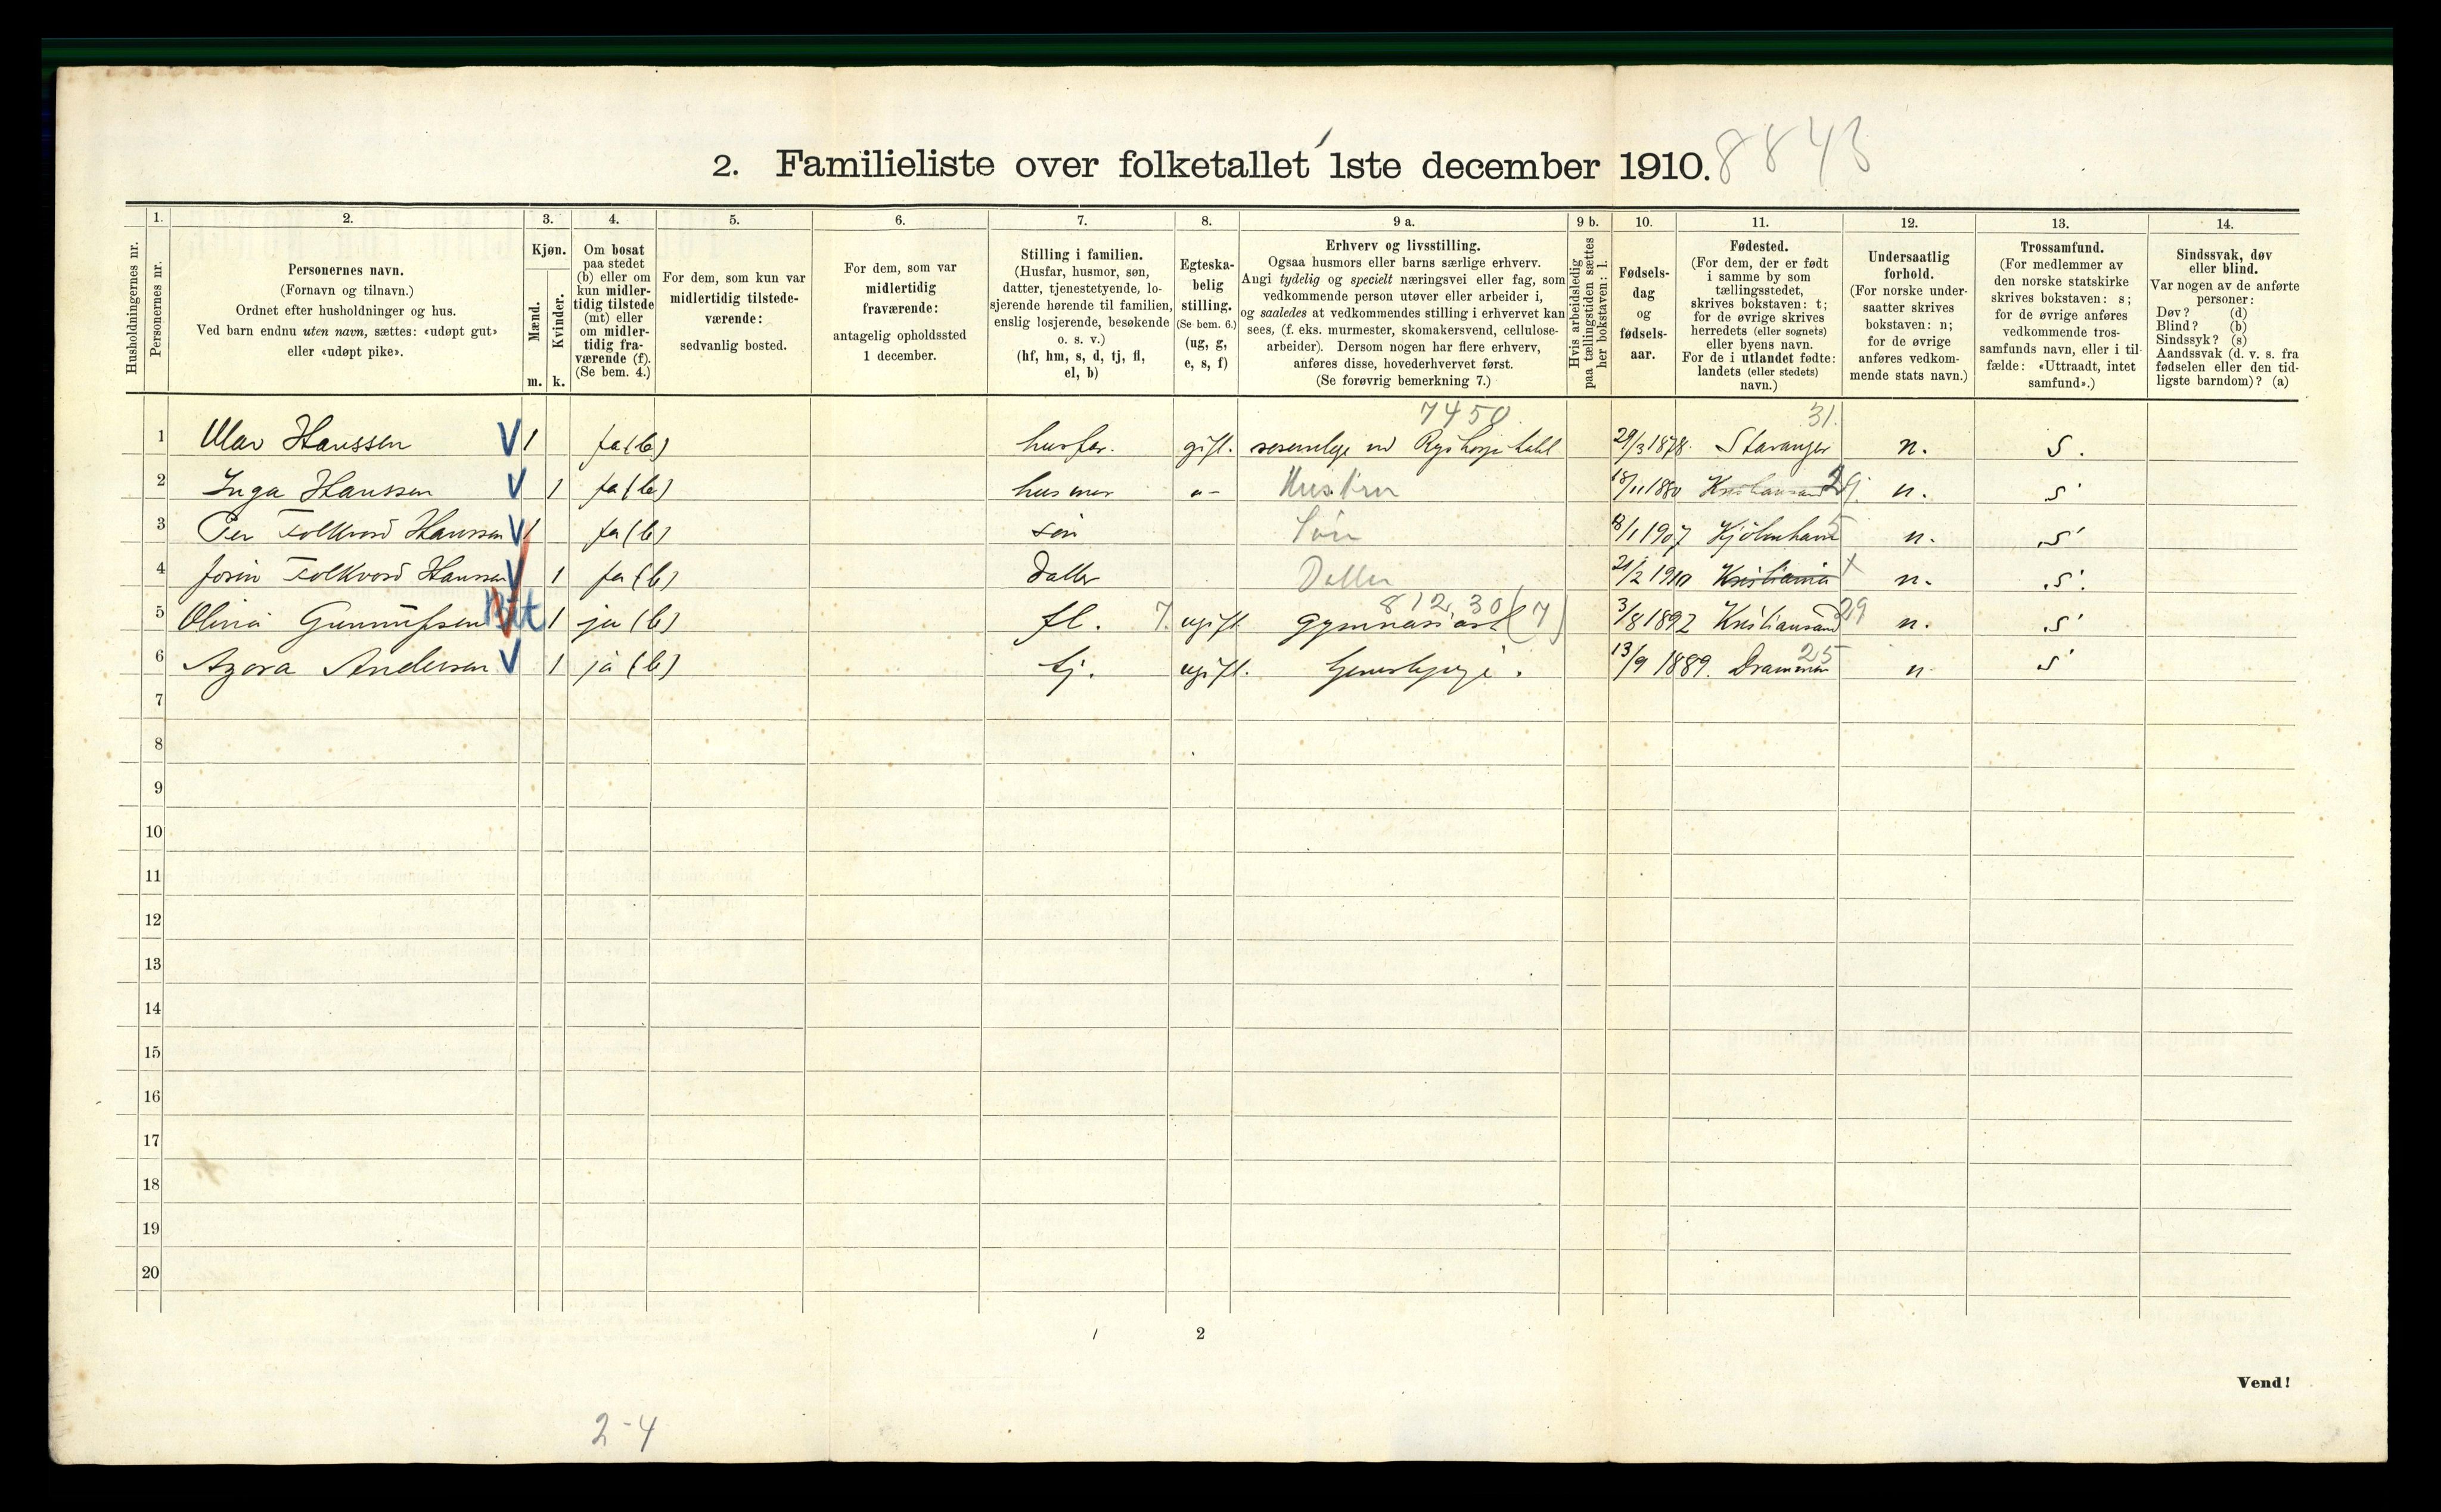 2. Familieliste over folketallet 1ste december 1910. 8843
Husholdningernes nr.
1. Personernes nr.
2. Personernes navn.
(Fornavn og tilnavn.)
Ordnet efter husholdninger og hus.
Ved barn endnu uten navn, sættes: «udøpt gut»
eller «udøpt pike».
3. Kjøn.
Mænd. m.
Kvinder. k.
4. Om bosat
paa stedet
(b) eller om
kun midler-
tidig tilstede
(mt) eller
om midler-
tidig fra-
værende (f).
(Se bem. 4.)
5. For dem, som kun var
midlertidig tilstede-
værende:
sedvanlig bosted.
6. For dem, som var
midlertidig
fraværende:
antagelig opholdssted
1 december.
7. Stilling i familien.
(Husfar, husmor, søn,
datter, tjenestetyende, lo-
sjerende hørende til familien,
enslig losjerende, besøkende
o. s. v.)
(hf, hm, s, d, tj, fl,
el, b)
8. Egteska-
belig
stilling.
(Se bem. 6.)
(ug, g,
e, s, f)
9 a. Erhverv og livsstilling.
Ogsaa husmors eller barns særlige erhverv.
Angi tydelig og specielt næringsvei eller fag, som
vedkommende person utøver eller arbeider i,
og saaledes at vedkommendes stilling i erhvervet kan
sees, (f. eks. murmester, skomakersvend, cellulose-
arbeider). Dersom nogen har flere erhverv,
anføres disse, hovederhvervet først.
(Se forøvrig bemerkning 7.)
9 b. Hvis arbeidsledig
paa tællingstiden sættes
her bokstaven: l.
10. Fødsels-
dag
og
fødsels-
aar.
11. Fødested.
(For dem, der er født
i samme by som
tællingsstedet,
skrives bokstaven: t;
for de øvrige skrives
herredets (eller sognets)
eller byens navn.
For de i utlandet fødte:
landets (eller stedets)
navn.)
12. Undersaatlig
forhold.
(For norske under-
saatter skrives
bokstaven: n;
for de øvrige
anføres vedkom-
mende stats navn.)
13. Trossamfund.
(For medlemmer av
den norske statskirke
skrives bokstaven: s;
for de øvrige anføres
vedkommende tros-
samfunds navn, eller i til-
fælde: «Uttraadt, intet
samfund».)
14. Sindssvak, døv
eller blind.
Var nogen av de anførte
personer:
Døv? (d)
Blind? (b)
Sindssyk? (s)
Aandssvak (d. v. s. fra
fødselen eller den tid-
ligste barndom)? (a)
7450 31.
1 Olav Hanssen V 1 ja (b) husfar. gift. ved 29/3 1878. Stavanger n. s.
2 Inga Hanssen V 1 ja (b) husmor "- Hustru 1880 Kristiansand 29. n. s
3 Per Folkvord Hanssen V 1 ja (b) søn Søn 8/1 1907 Kjöbenhavn 5 n. s
4 Folkvord Hanssen V 1 ja (b) Datter Datter 21/2 1910 Kristiania t n. s.
812.30 (7)
5 Olivia Gunnufsen 1 ja (b) fl. 7. ugift gymnasiast 3/8 1892 Kristiansand 29 n. s
6 Azora Andersen V 1 ja (b) tj. ugift. 13/9 1889. Drammen 25 n s
7
8
9
10
11
12
13
14
15
16
17
18
19
20
2
Vend!
2-4